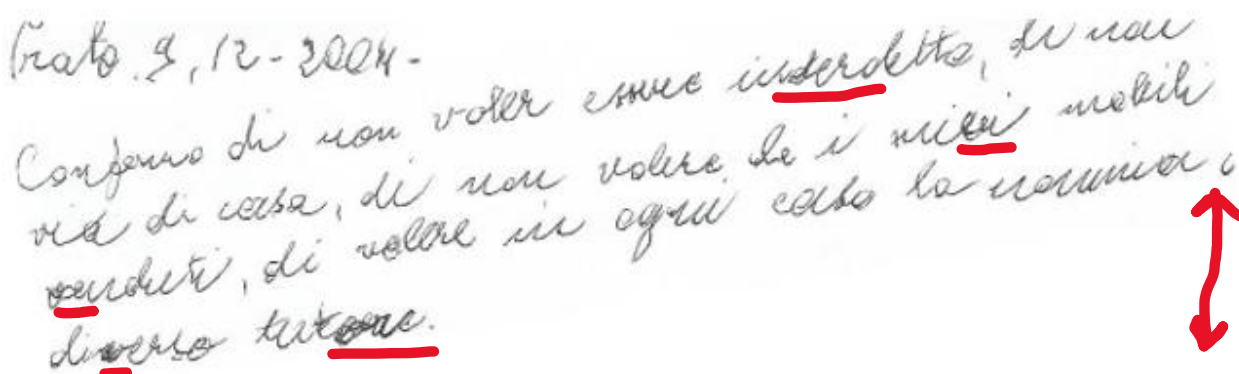 Prato 9, 12-2004-
Confermo di non voler essere interdetta, di non
via di casa, di non volere che i miei mobili
venduti, di volere in ogni caso la nomina
diverso tutore.